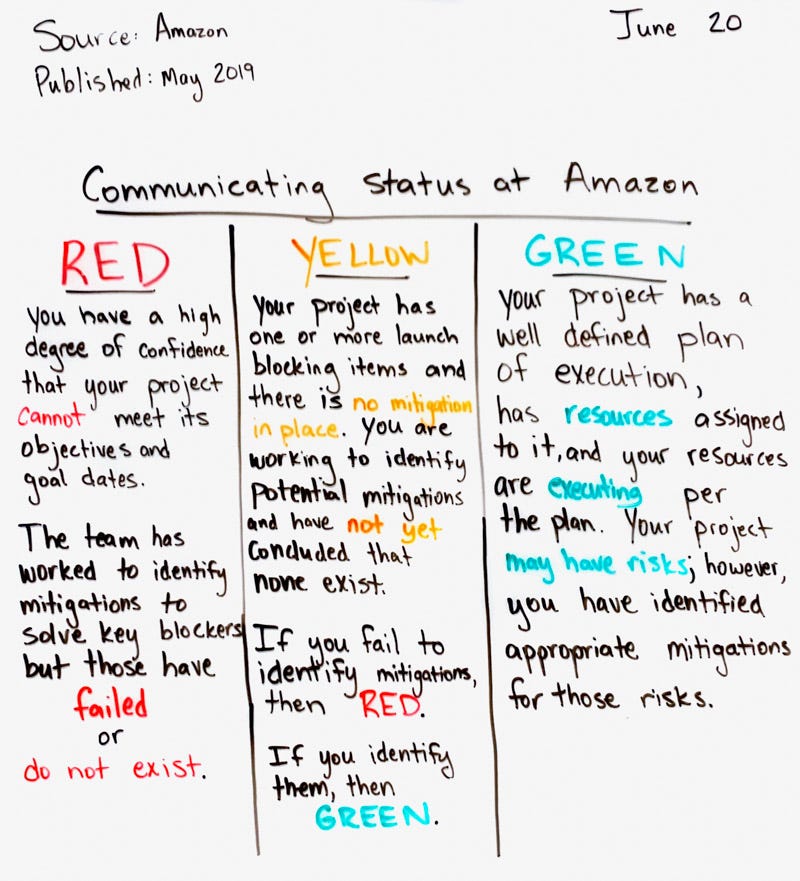 Source: Amazon
Published: May 2019
June 20
Communicating Status at Amazon
RED
You have a high
degree of confidence
that your project
cannot meet its
objectives and
goal dates.
The team has
worked to identify
mitigations to
solve key blockers
but those have
failed
or
do not exist.
YELLOW
Your project has
one or more launch
blocking items and
there is no mitigation
in place. You are
working to identify
potential mitigations
and have not yet
concluded that
none exist.
If you fail to
identify mitigations,
then RED.
If you identify
them, then
GREEN.
GREEN
Your project has a
well defined plan
of execution,
has resources assigned
to it, and your resources
are executing per
the plan. Your project
may have risks; however,
you have identified
appropriate mitigations
for those risks.